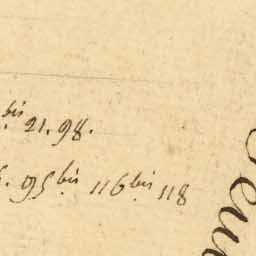 bis 21. 98.
. 95 bis 116 bis 118